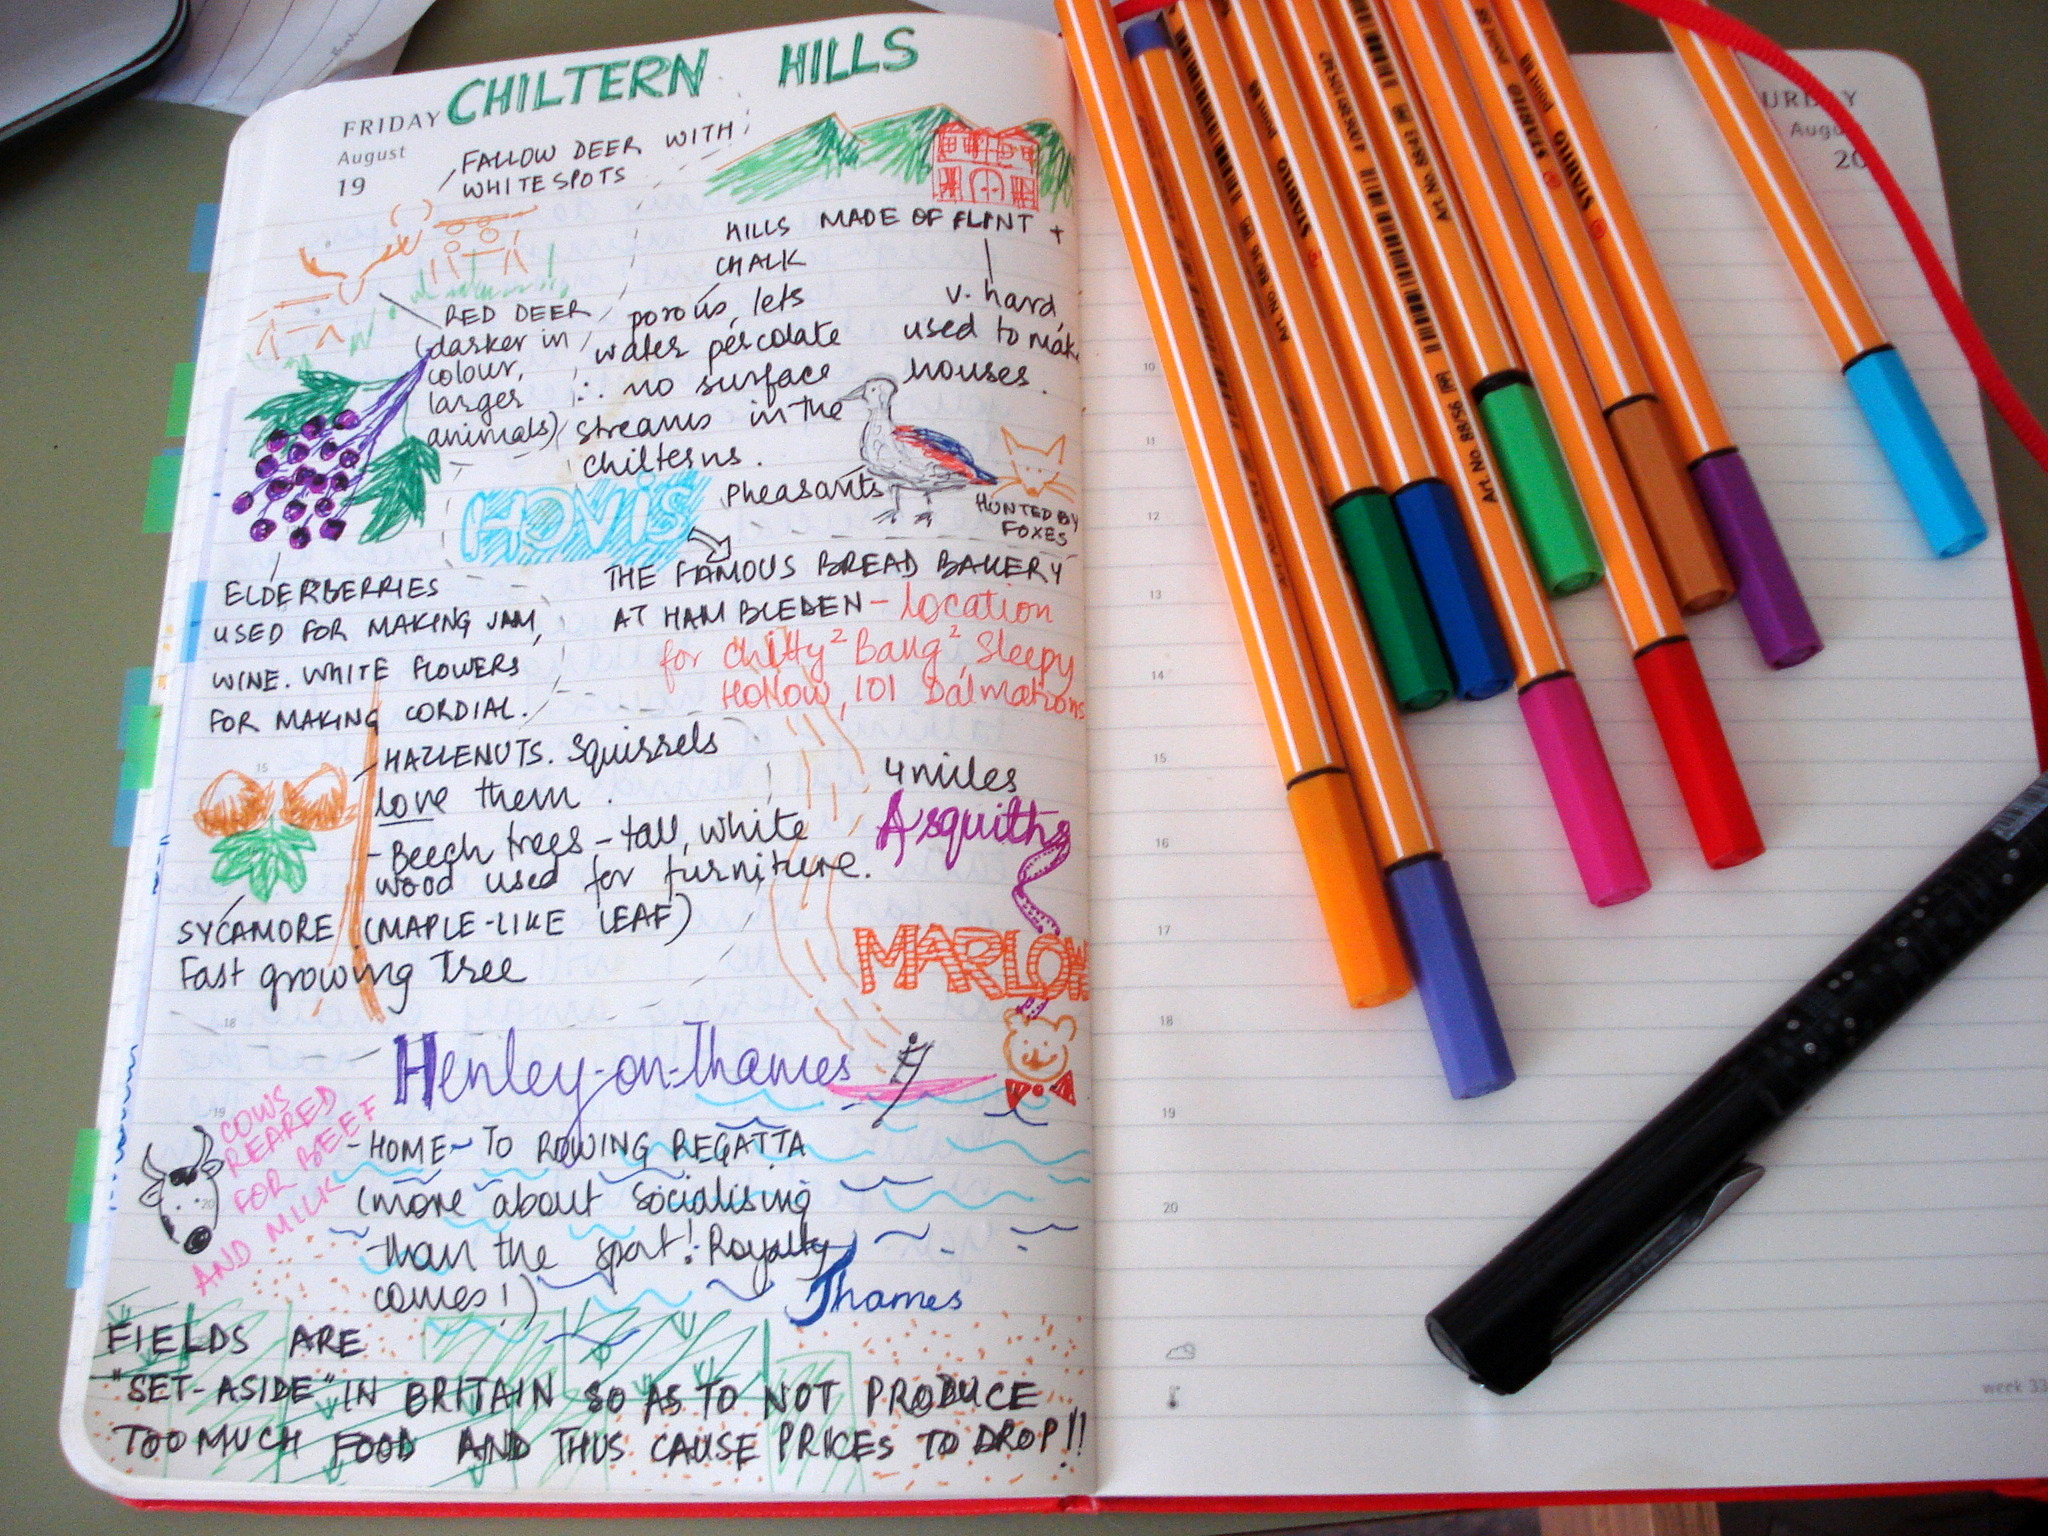 CHILTERN HILLS
FRIDAY
August
19
FALLOW DEER WITH
WHITE SPOTS
HILLS MADE OF FLINT +
CHALK
porous, lets
water percolate
∴ no surface
streams in the
chilterns.
v. hard,
used to make
houses.
RED DEER
(darker in
colour,
larger
animals)
Pheasants
HUNTED BY
FOXES
HOVIS
THE FAMOUS BREAD BAKERY
AT HAMBLEDEN - location
for Chitty² Bang², Sleepy
Hollow, 101 Dalmations
ELDERBERRIES
USED FOR MAKING JAM,
WINE. WHITE FLOWERS
FOR MAKING CORDIAL.
HAZLENUTS. Squirrels
love them.
- Beech trees - tall, white
wood used for furniture.
15
SYCAMORE (MAPLE-LIKE LEAF)
Fast growing Tree
4 miles
Asquiths
MARLOW
18
Henley-on-Thames
19
COWS
REARED
FOR BEEF
AND MILK
20
- HOME TO ROWING REGATTA
(more about socialising
than the sport! Royalty
comes!)
Thames
FIELDS ARE
"SET-ASIDE" IN BRITAIN SO AS TO NOT PRODUCE
TOO MUCH FOOD AND THUS CAUSE PRICES TO DROP!!
URDAY
Augu
20
10
11
12
13
14
15
16
17
18
19
20
week 33
STABILO
point 88
STABILO
point 88
STABILO
Art. No. 88/36
Art. No. 88/43
Art. No. 88/56